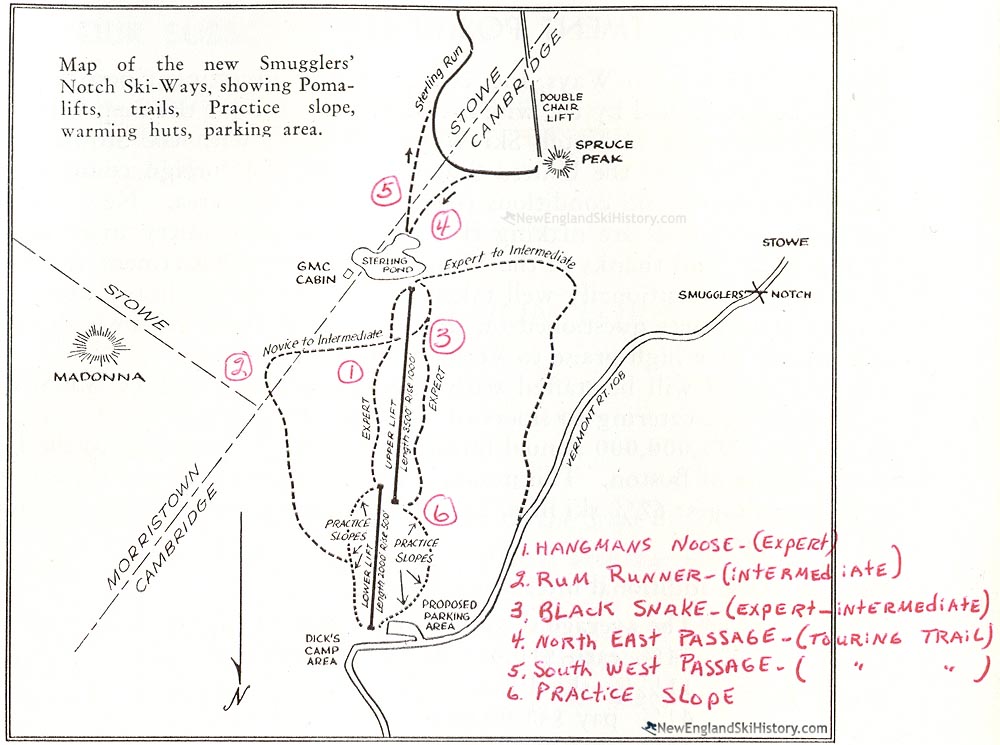 Map of the new Smugglers'
Notch Ski-Ways, showing Poma-
lifts, trails, Practice slope,
warming huts, parking area.
Sterling Run
STOWE
CAMBRIDGE
DOUBLE
CHAIR
LIFT
SPRUCE
PEAK
5
4
NewEnglandSkiHistory.com
STERLING
POND
GMC
CABIN
Expert to Intermediate
STOWE
SMUGGLERS' NOTCH
STOWE
MADONNA
Novice to Intermediate
2
1
3
EXPERT
UPPER LIFT
Length 3500' Rise 1000'
EXPERT
VERMONT RT. 108
MORRISTOWN
CAMBRIDGE
6
PRACTICE
SLOPES
LOWER LIFT
Length 2000' Rise 500'
PRACTICE
SLOPES
PROPOSED
PARKING
AREA
DICK'S
CAMP
AREA
N
1. HANGMANS NOOSE - (EXPERT)
2. RUM RUNNER - (INTERMEDIATE)
3. BLACK SNAKE - (EXPERT - INTERMEDIATE)
4. NORTH EAST PASSAGE - (TOURING TRAIL)
5. SOUTH WEST PASSAGE - ( " " )
6. PRACTICE SLOPE
NewEnglandSkiHistory.com